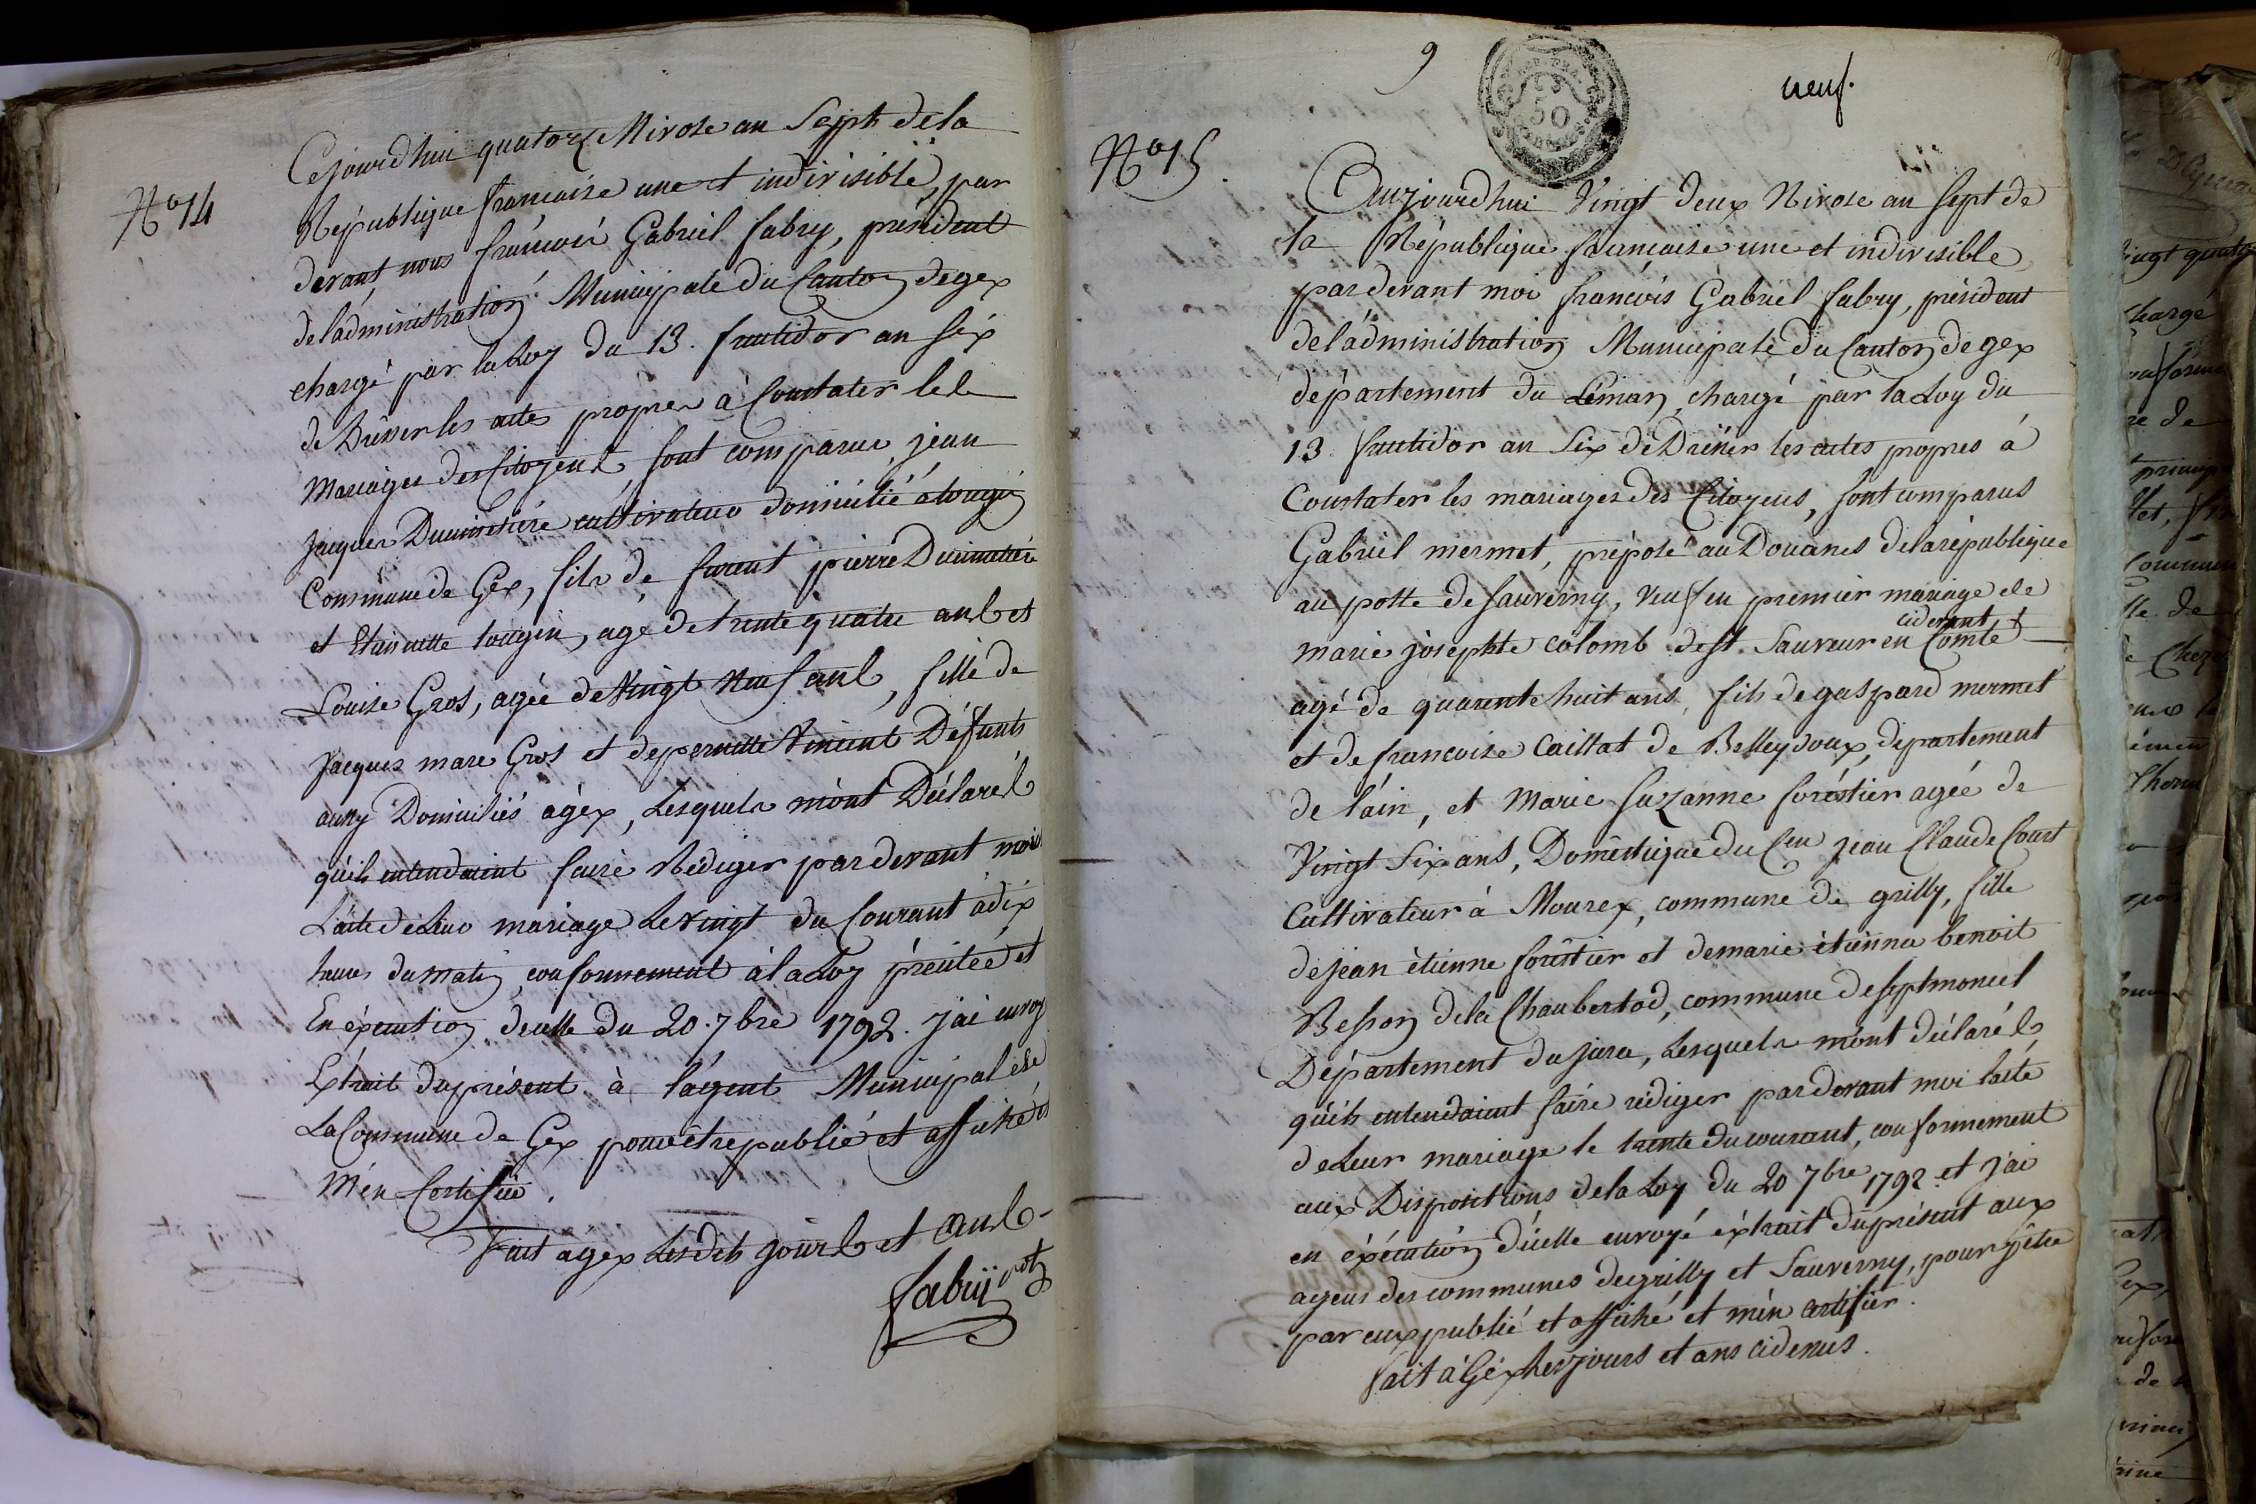 N° 14
Cejourdhui quatorze Nivose an Sept dela
République francaise une et indivisible, par
devant nous françois Gabriel fabry, président
deladministration Municipale du Canton degex
chargé par la Loy du 13. fructidor an six
de Dresser les actes propres à Constater le
Mariages des Citoyens, sont comparus, jean
jacques Ducimetière cultivateur domicilié à tougin
Commune de Gex, fils de pierre Ducimetière
et Etiennette tougin, agé de trente quatre ans et
Louise Gros, agée de Vingt neuf ans, fille de
jacques marc Gros et depernette Vincent Défunts
aussy Domiciliés agex, Lesquels m'ont Déclarés
qu'ils entendaient faire Rédiger pardevant moi
L'acte deLeur mariage Le vingt du Courant à dix
heures du matin, conformement à la Loy précitée et
En éxecution d'icelle du 20. 7bre 1792. j'ai envoy
Extrait duprésent à l'agent Municipal de
La Commune de Gex pour être publié et affiché et
M'en Certifier.
Fait agex Lesdits jours et ans
fabry
9
RÉP. FRA.
50
neuf.
N° 15.
Aujourdhui Vingt deux Nivose an sept de
la République francaise une et indivisible
pardevant moi françois Gabriel fabry, président
deladministration Municipale du Canton de gex
département du Léman, chargé par la Loy du
13 fructidor an Six de Dresser les actes propres à
Constater les mariages des Citoyens, sont comparus
Gabriel mermet, préposé au Douanes delarépublique
au poste de Sauverny, veuf en premier mariage de
cidevant
marie josephte colomb de St. Sauveur en Comté
agé de quarente huit ans, fils de gaspard mermet
et de francoise Caillat de Belleydoux, departement
de l'ain, et Marie Suzanne foréstier agée de
Vingt Six ans, Doméstique du Cen jean Claude Court
Cultivateur à Mourex, commune de grilly, fille
de jean étienne foréstier et demarie étienna benoit
Besson dela Chaubertod, commune deseptmoncel
Département du jura, Lesquels m'ont déclarés
qu'ils entendaient faire rédiger pardevant moi l'acte
deLeur mariage le trente ducourant, conformement
aux Dispositions dela Loy du 20 7bre 1792 et j'ai
en éxécution d'icelle envoyé éxtrait duprésent aux
agens des communes degrilly et Sauverny, pour y être
par eux publié et affiché et m'en certifier.
fait à Gex les jours et ans cidevus.